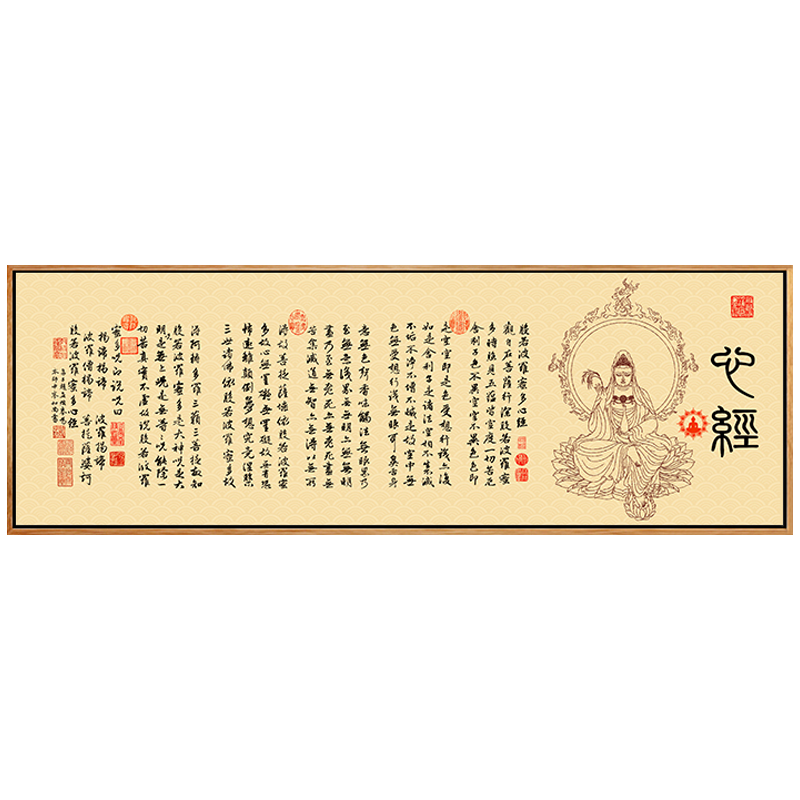 心經
般若波羅蜜多心經
觀自在菩薩行深般若波羅蜜
多時照見五蘊皆空度一切苦厄
舍利子色不異空空不異色色即
是空空即是色受想行識亦復
如是舍利子是諸法空相不生不滅
不垢不淨不增不減是故空中無
色無受想行識無眼耳鼻舌身
意無色聲香味觸法無眼界乃
至無意識界無無明亦無無明
盡乃至無老死亦無老死盡無
苦集滅道無智亦無得以無所
得故菩提薩埵依般若波羅蜜
多故心無罣礙無罣礙故無有恐
怖遠離顛倒夢想究竟涅槃
三世諸佛依般若波羅蜜多故
得阿耨多羅三藐三菩提故知
般若波羅蜜多是大神咒是大
明咒是無上咒是無等等咒能除一
切苦真實不虛故說般若波羅
蜜多咒即說咒曰
揭諦揭諦 波羅揭諦
波羅僧揭諦 菩提薩婆訶
般若波羅蜜多心經